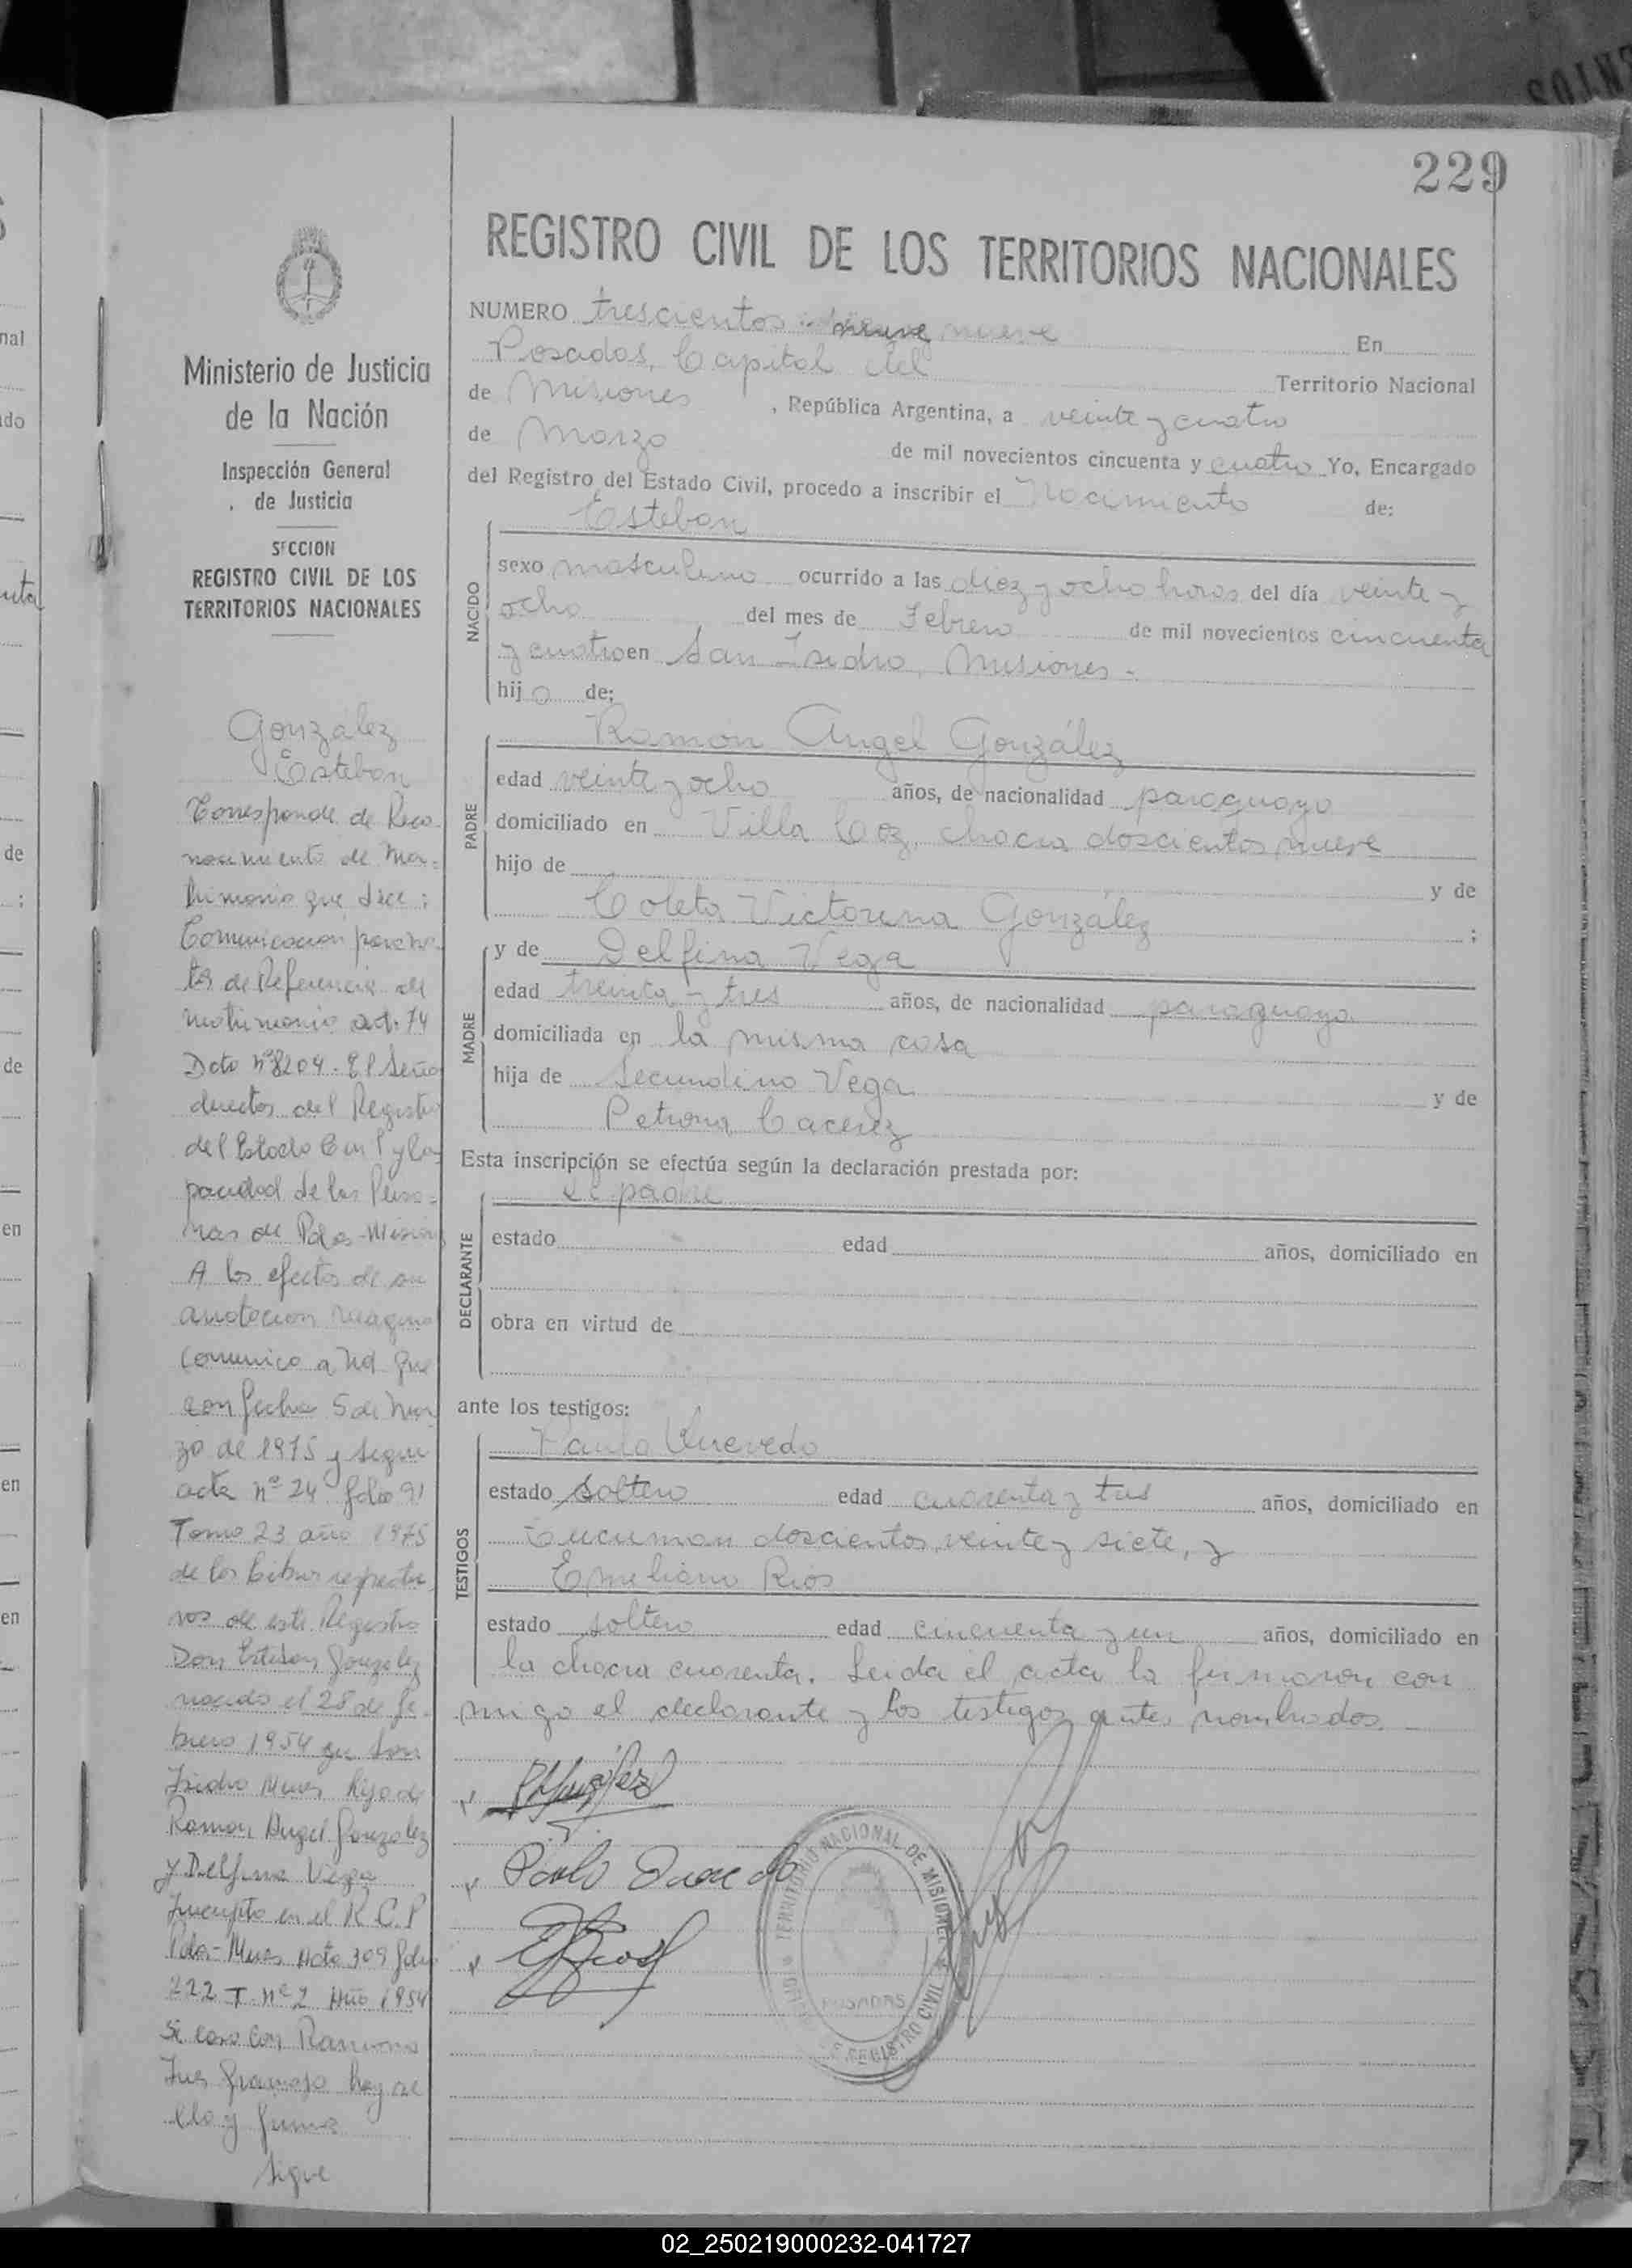 229
REGISTRO CIVIL DE LOS TERRITORIOS NACIONALES
NUMERO trescientos nueve nueve En
Posadas, Capital del Territorio Nacional
de Misiones, República Argentina, a veinte y cuatro
de Marzo de mil novecientos cincuenta y cuatro Yo, Encargado
del Registro del Estado Civil, procedo a inscribir el Nacimiento de:
Esteban
NACIDO
sexo masculino ocurrido a las diez y ocho horas del día veinte y
ocho del mes de Febrero de mil novecientos cincuenta
y cuatro en San Isidro, Misiones.-
hijo de:
Ramón Angel González
PADRE
edad veinte y ocho años, de nacionalidad paraguaya
domiciliado en Villa Coz, chacra doscientos nueve
hijo de y de
Coleta Victorina González ;
y de Delfina Vega
MADRE
edad treinta y tres años, de nacionalidad paraguaya
domiciliada en la misma casa
hija de Secundino Vega y de
Petrona Cacerez
Esta inscripción se efectúa según la declaración prestada por:
El padre
DECLARANTE
estado edad años, domiciliado en
obra en virtud de
ante los testigos:
TESTIGOS
Paulo Quevedo
estado soltero edad cuarenta y tres años, domiciliado en
Tucuman doscientos veinte y siete, y
Emeliano Rios
estado soltero edad cincuenta y un años, domiciliado en
la chacra cuarenta. Leida el acta la firmaron con
migo el declarante y los testigos antes nombrados.-
TERRITORIO NACIONAL DE MISIONES
REGISTRO CIVIL
POSADAS
Ministerio de Justicia
de la Nación
Inspección General
de Justicia
SECCION
REGISTRO CIVIL DE LOS
TERRITORIOS NACIONALES
González
Esteban
Corresponde de Reco-
nocimiento de Ma-
trimonio que dice:
Comunicacion para no-
tas de Referencia del
matrimonio art. 74
Dcto nº 8204. El Señor
director del Registro
del Estado Civil y Ca-
pacidad de las Perso-
nas de Pdas-Misiones
A los efectos de su
anotacion marginal
comunico a Ud que
con fecha 5 de Mar
zo de 1975 y segun
acta nº 24 folio 91
Tomo 23 año 1975
de los Libros respecti
vos de este Registro
Don Esteban Gonzalez
nacido el 28 de Fe
brero 1954 en San
Isidro Mnes hijo de
Ramon Angel Gonzalez
y Delfina Vega
Inscripto en el R.C.P
Pdas-Mnes Acta 309 folio
222 T. nº 2 Año 1954
Se caso con Ramona
hay se
llo y firma
Sigue
02_250219000232-041727